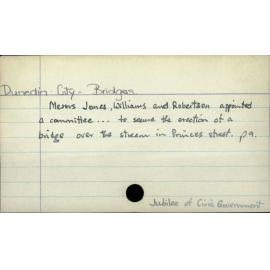 Dunedin City - Bridges
Messrs Jones, Williams and Robertson appointed
a committee ... to secure the erection of a
bridge over the stream in Princes street. p9.
Jubilee of Civic Government